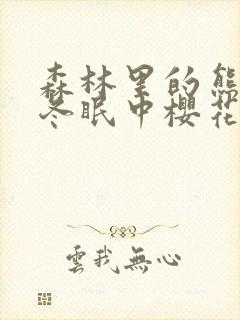 森林里的熊
冬眠中櫻花
雲我無心